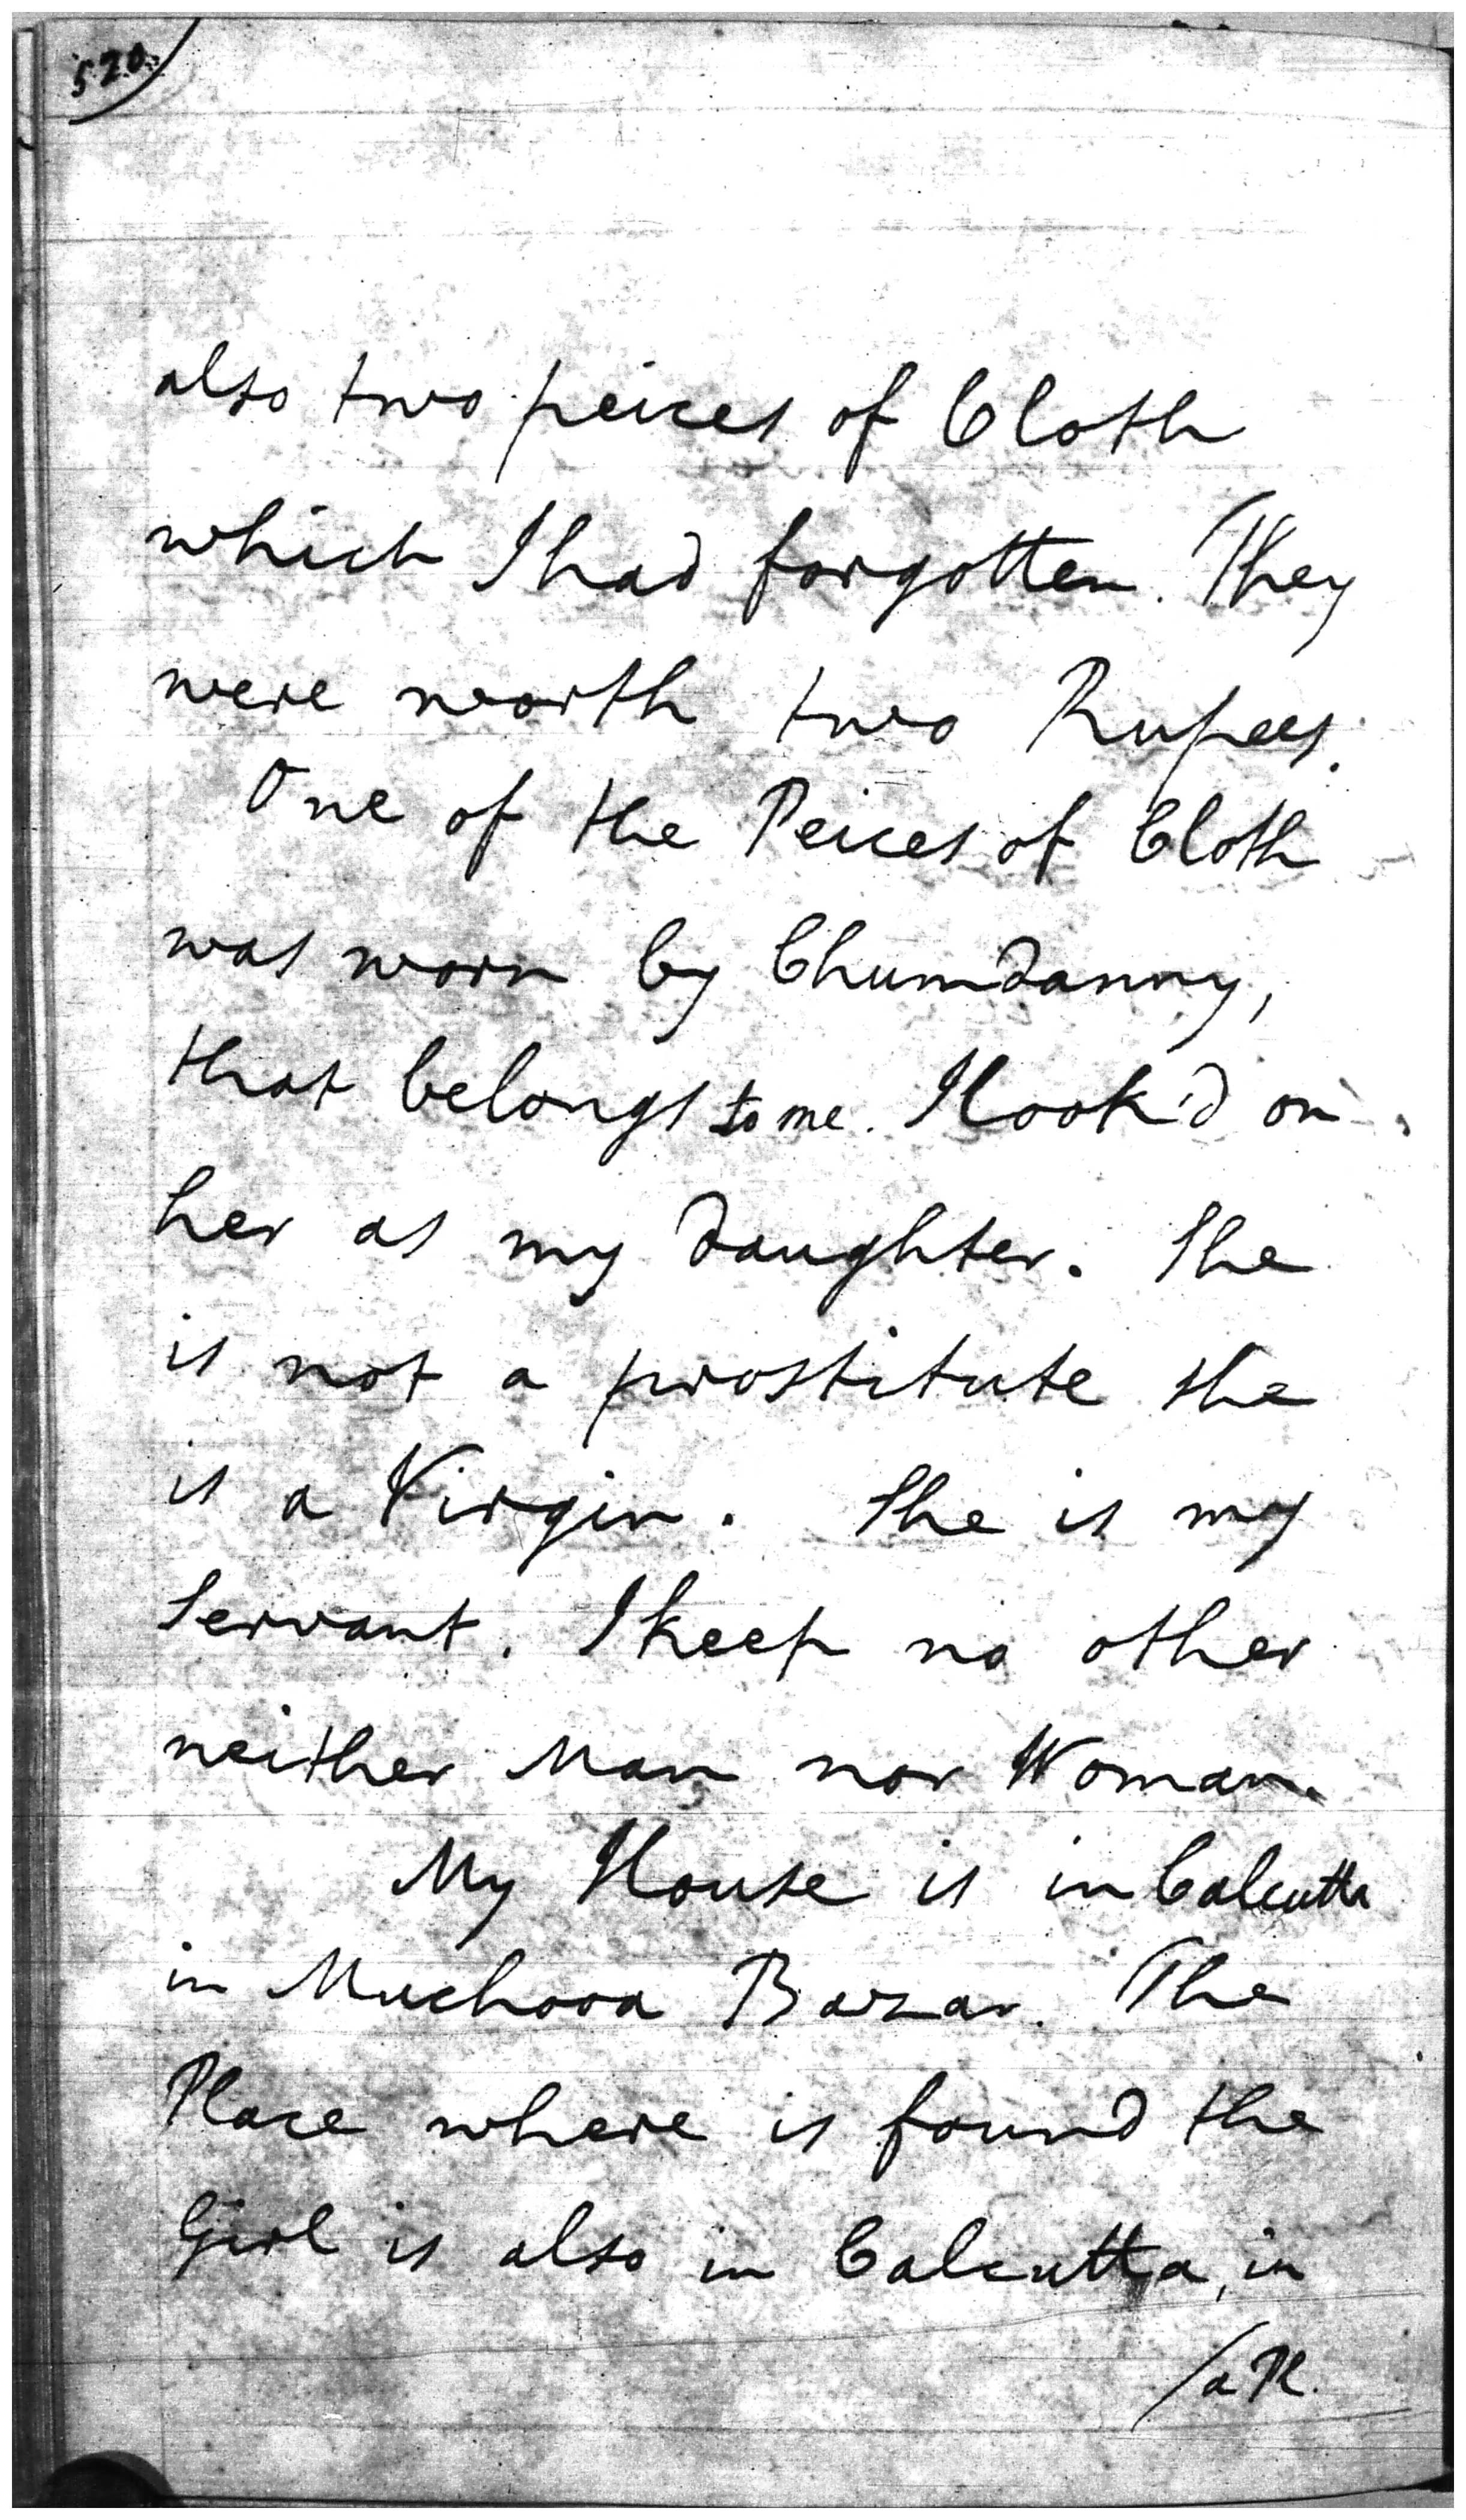 520.
also two peices of Cloth
which I had forgotten. They
were worth two Rupees.
One of the Peices of Cloth
was worn by Chumdanny,
that belongs to me. I look'd on
her as my daughter. She
is not a prostitute she
is a Virgin. She is my
Servant. I keep no other
neither Man nor Woman.
My House is in Calcutta
in Muchooa Bazar. The
Place where is found the
Girl is also in Calcutta, in
/a Pl.